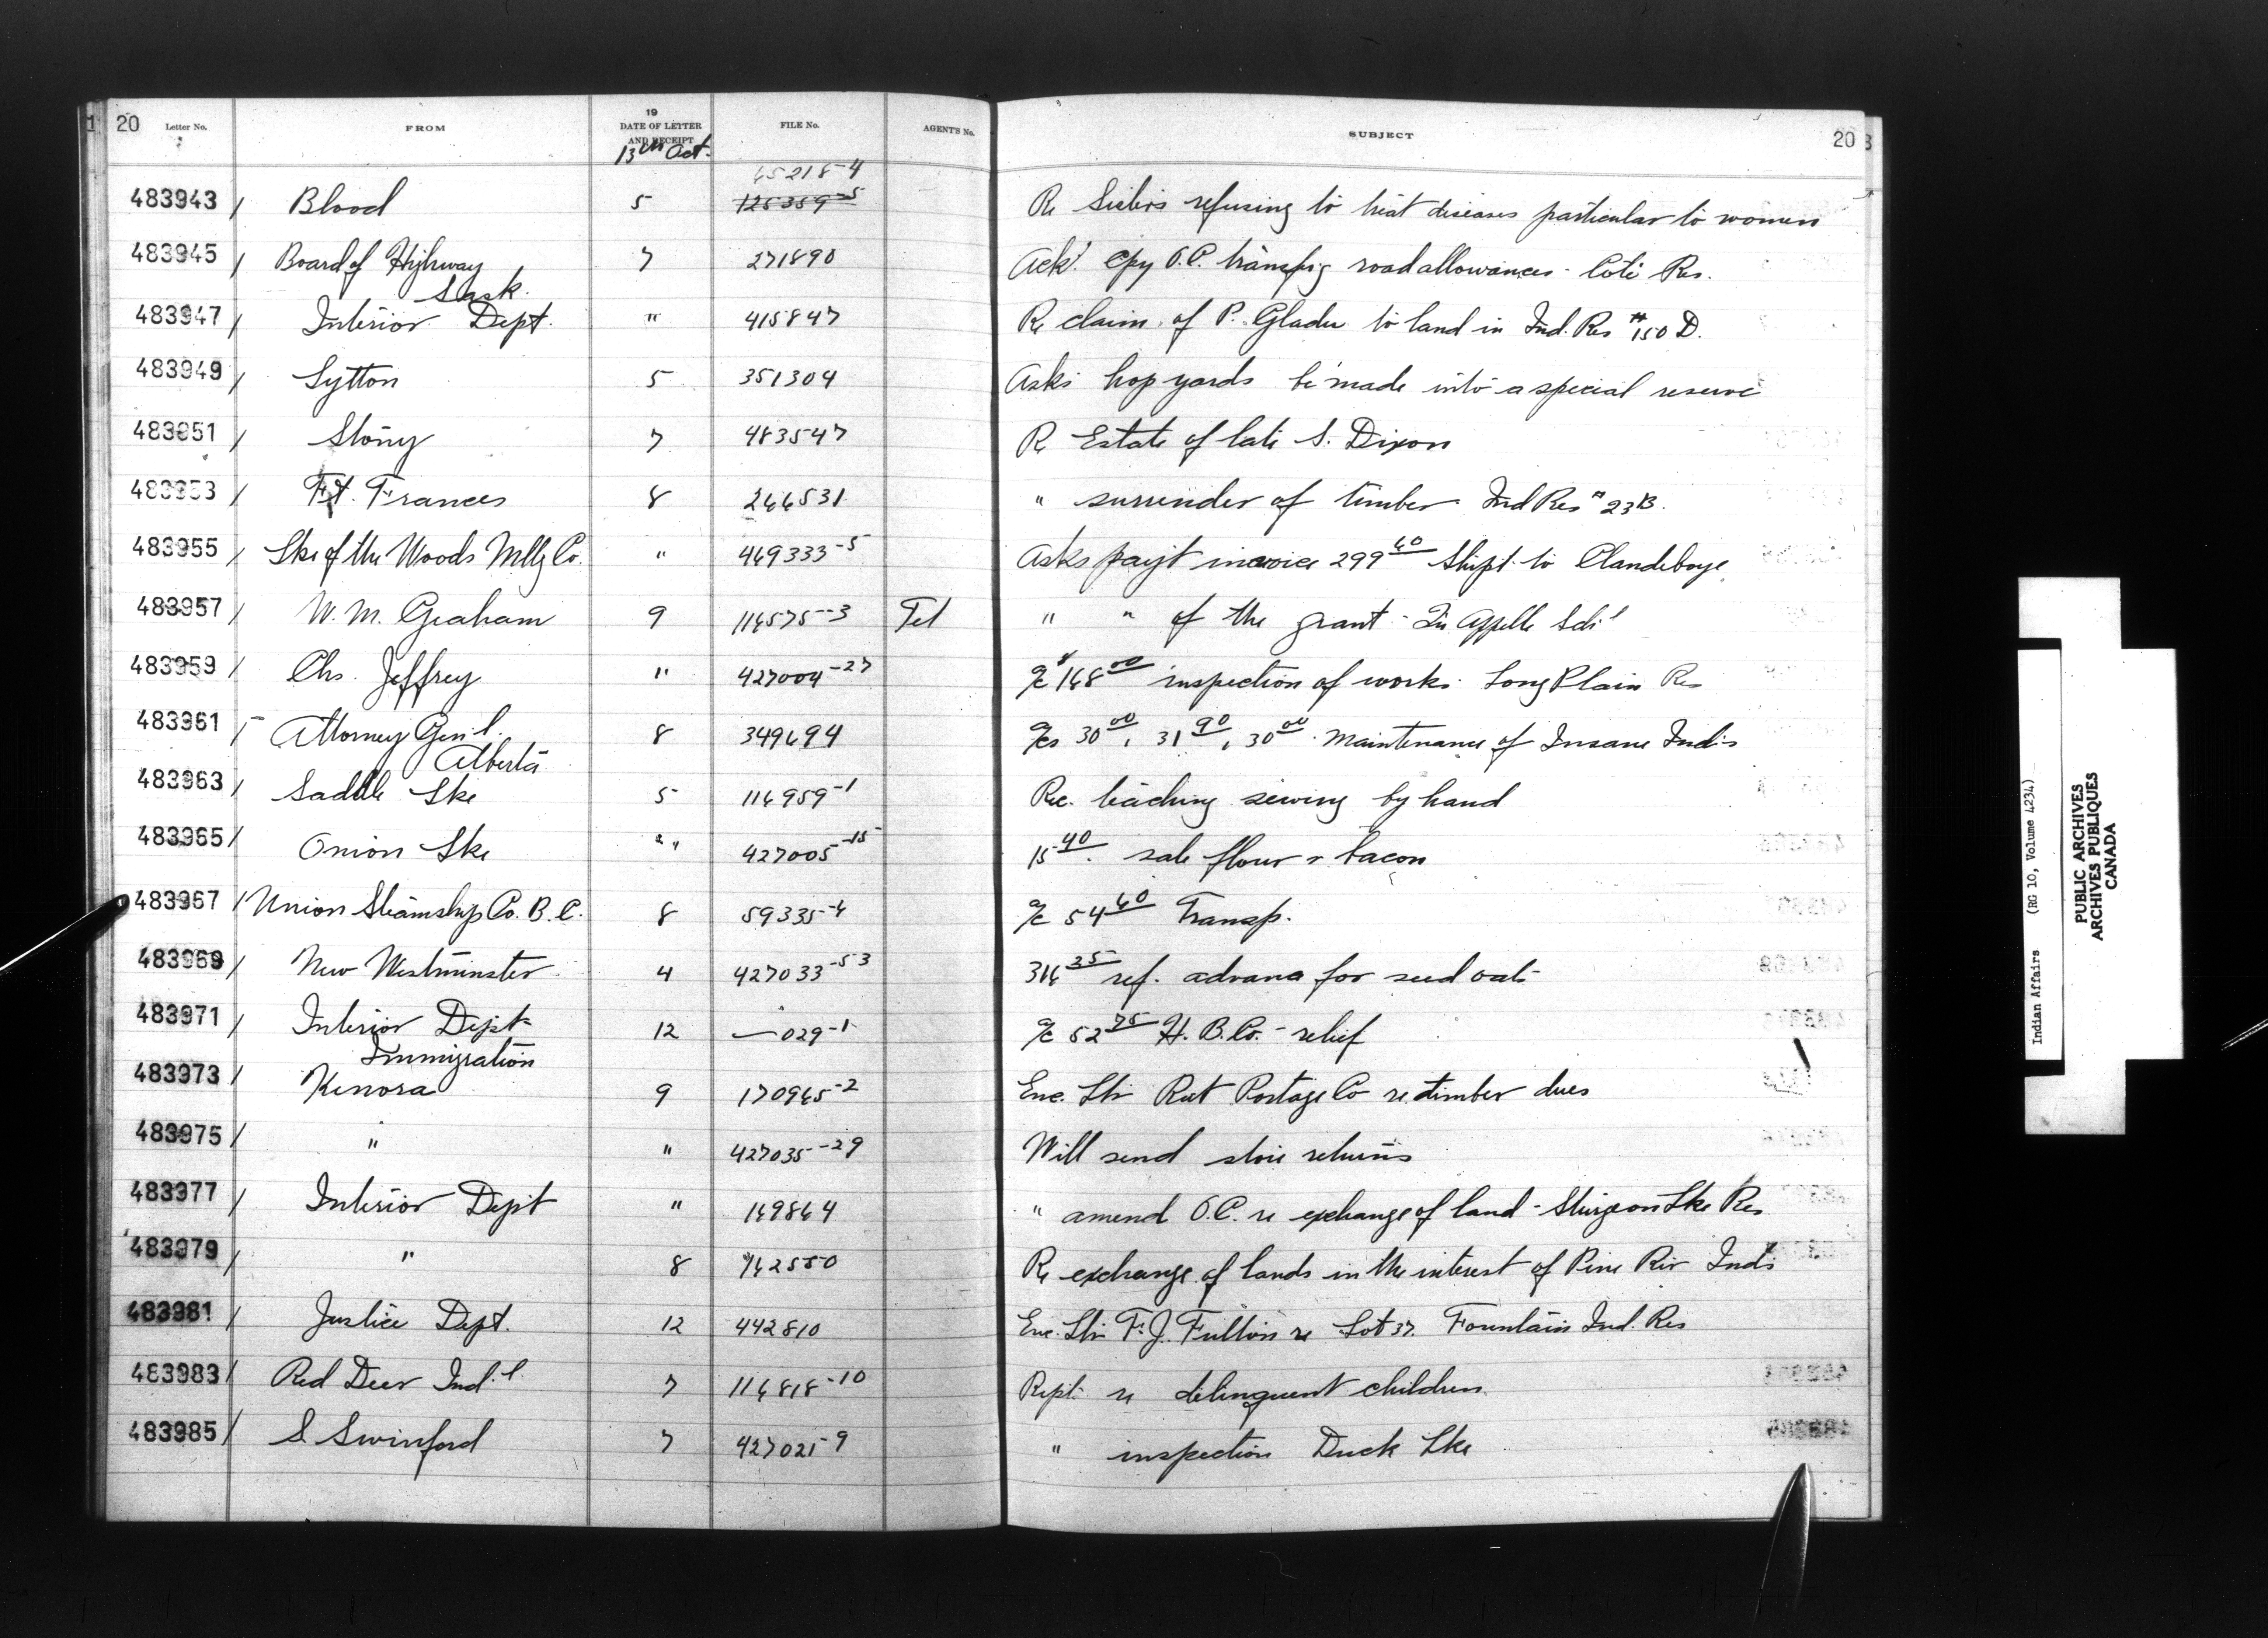 20 Letter No. FROM 19 DATE OF LETTER AND RECEIPT FILE No. AGENT'S No. SUBJECT 20
13th Oct.
45218-4
483943 / Blood 5 125359-5 Re Sisters refusing to treat diseases particular to women
483945 / Board of Highway 7 271890 Ack'. Cpy O.C. transfrg road allowances - Coté Res.
Sask.
483947 / Interior Dept. " 415847 Re claim of P. Gladu to land in Ind. Res #150 D.
483949 / Lytton 5 351304 Asks hop yards be made into a special reserve
483951 / Stony 7 483547 Re Estate of late S. Dixon
483953 / Ft. Frances 8 244531 " surrender of timber Ind Res # 23B.
483955 / Lke of the Woods Mllg Co. " 469333-5 Asks payt invoice 299 40 Shipt. to Clandeboye
483957 / W. M. Graham 9 114575-3 Tel " " of the grant - Qu'Appelle Sch'l
483959 / Chs. Jeffrey " 427004-27 a/c 148 00 inspection of works. Long Plain Res
483961 / Attorney Gen'l. 8 349494 a/cs 30 00, 31 90, 30 00. Maintenance of Insane Ind's
Alberta
483963 / Saddle Lke 5 114959-1 Rec. teaching sewing by hand
483965 / Onion Lke " 427005-15 15 40. sale flour & bacon
483967 / Union Steamship Co. B. C. 8 59335-4 a/c 54 40 Transp.
483969 / New Westminster 4 427033-53 314 35 ref. advance for seed oats
483971 / Interior Dept 12 — 029-1 a/c 52 75 H. B. Co. - relief
Immigration
483973 / Kenora 9 170945-2 Enc. Ltr Rat Portage Co re timber dues
483975 / " " 427035-29 Will send store returns
483977 / Interior Dept " 149864 " amend O.C. re exchange of land - Sturgeon Lke Res
483979 / " 8 742550 Re exchange of lands in the interest of Pine Riv Ind's
483981 / Justice Dept. 12 442810 Enc. Ltr F. J. Fulton re Lot 37. Fountain Ind. Res
483983 / Red Deer Ind'l 7 114818-10 Rept. re delinquent children
483985 / S. Swinford 7 427021-9 " inspection Duck Lke
Indian Affairs (RG 10, Volume 4234)
PUBLIC ARCHIVES
ARCHIVES PUBLIQUES
CANADA